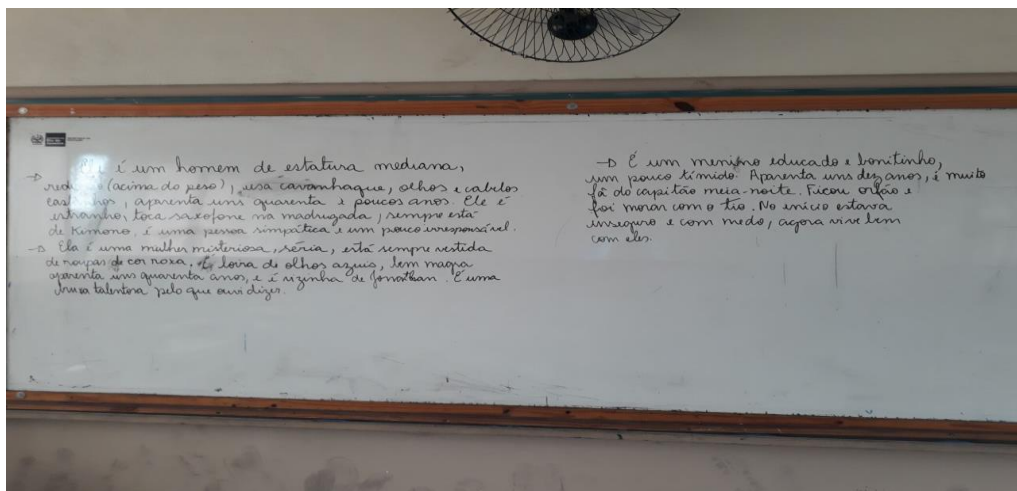 Ele é um homem de estatura mediana,
→ (acima do peso), usa cavanhaque, olhos e cabelos
castanhos, aparenta uns quarenta e poucos anos. Ele é
estranho, toca saxofone na madrugada, sempre está
de Kimono, é uma pessoa simpática e um pouco irresponsável.
→ Ela é uma mulher misteriosa, séria, está sempre vestida
de roupas de cor roxa. É loira de olhos azuis, bem magra
aparenta uns quarenta anos, e é vizinha de Jonathan. É uma
bruxa talentosa pelo que ouvi dizer.
→ É um menino educado e bonitinho,
um pouco tímido. Aparenta uns dez anos, é muito
fã do capitão meia-noite. Ficou orfão e
foi morar com o tio. No início estava
inseguro e com medo, agora vive bem
com eles.